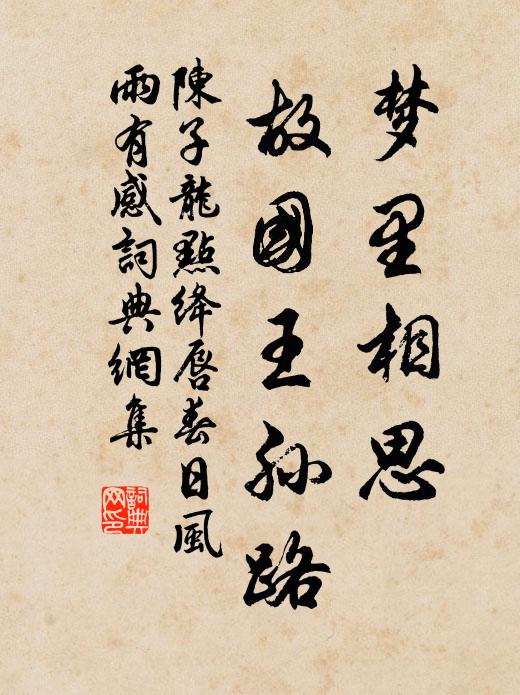 梦里相思
故國王孙路
陳子龍點绛唇春日風
雨有感詞典網集
詞典
网印